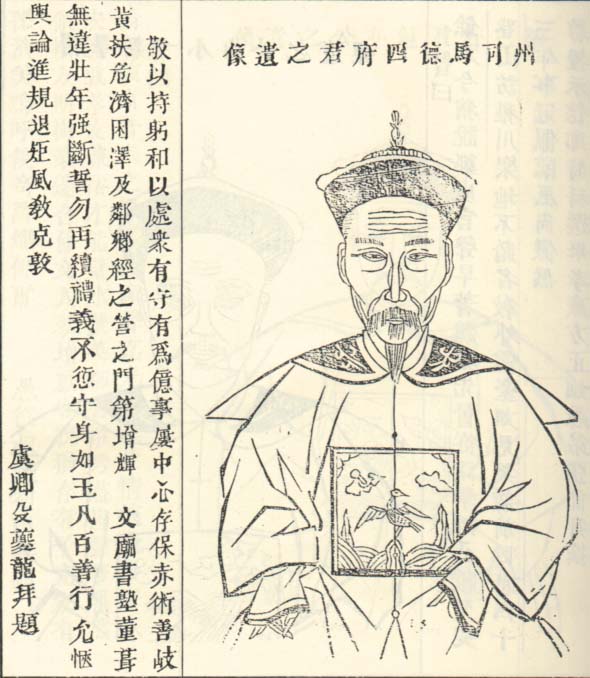 州司馬德四府君之遺像
敬以持躬和以處衆有守有爲億事屢中心存保赤術善岐
黃扶危濟困澤及鄰鄉經之營之門第增輝 文廟書塾董葺
無違壯年强斷誓勿再續禮義不愆守身如玉凡百善行允愜
輿論進規退矩風敎克敦
虞卿殳夔龍拜題